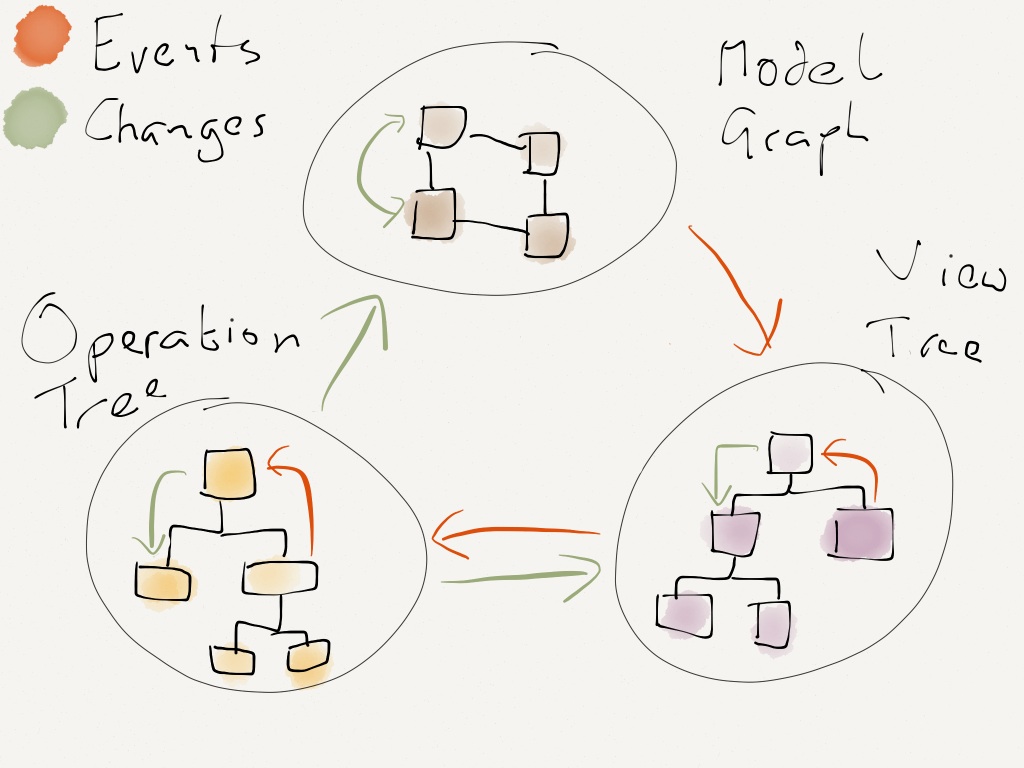 Events
Changes
Model
Graph
View
Tree
Operation
Tree